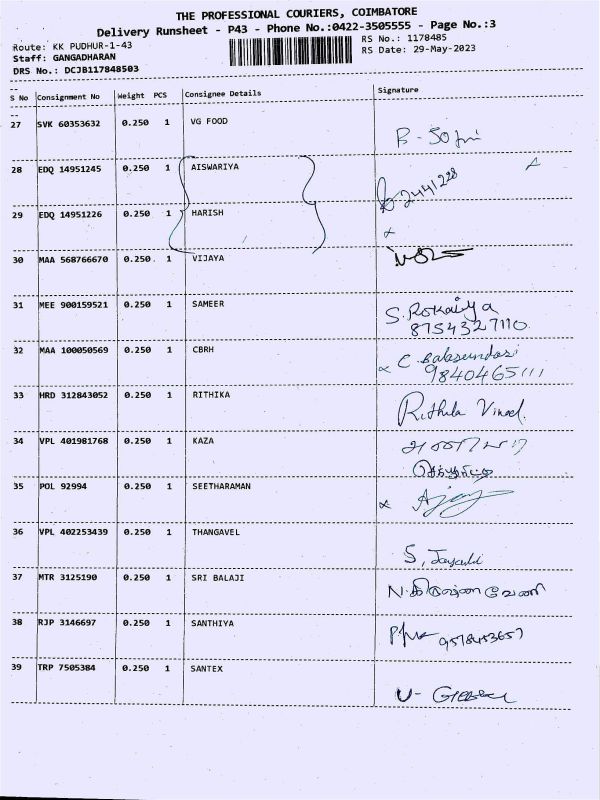 THE PROFESSIONAL COURIERS, COIMBATORE
Delivery Runsheet - P43 - Phone No.:0422-3505555 - Page No.:3
Route: KK PUDHUR-1-43 RS No.: 1178485
Staff: GANGADHARAN RS Date: 29-May-2023
DRS No.: DCJB117848503
--
S No Consignment No Weight PCS Consignee Details Signature
--
27 SVK 60353632 0.250 1 VG FOOD
28 EDQ 14951245 0.250 1 AISWARIYA
29 EDQ 14951226 0.250 1 HARISH
30 MAA 568766670 0.250 1 VIJAYA
31 MEE 900159521 0.250 1 SAMEER S. Rokaiya
8754327110
32 MAA 100050569 0.250 1 CBRH
9840465111
33 HRD 312843052 0.250 1 RITHIKA
34 VPL 401981768 0.250 1 KAZA
35 POL 92994 0.250 1 SEETHARAMAN Ajay
36 VPL 402253439 0.250 1 THANGAVEL
37 MTR 3125190 0.250 1 SRI BALAJI
38 RJP 3146697 0.250 1 SANTHIYA
39 TRP 7505384 0.250 1 SANTEX